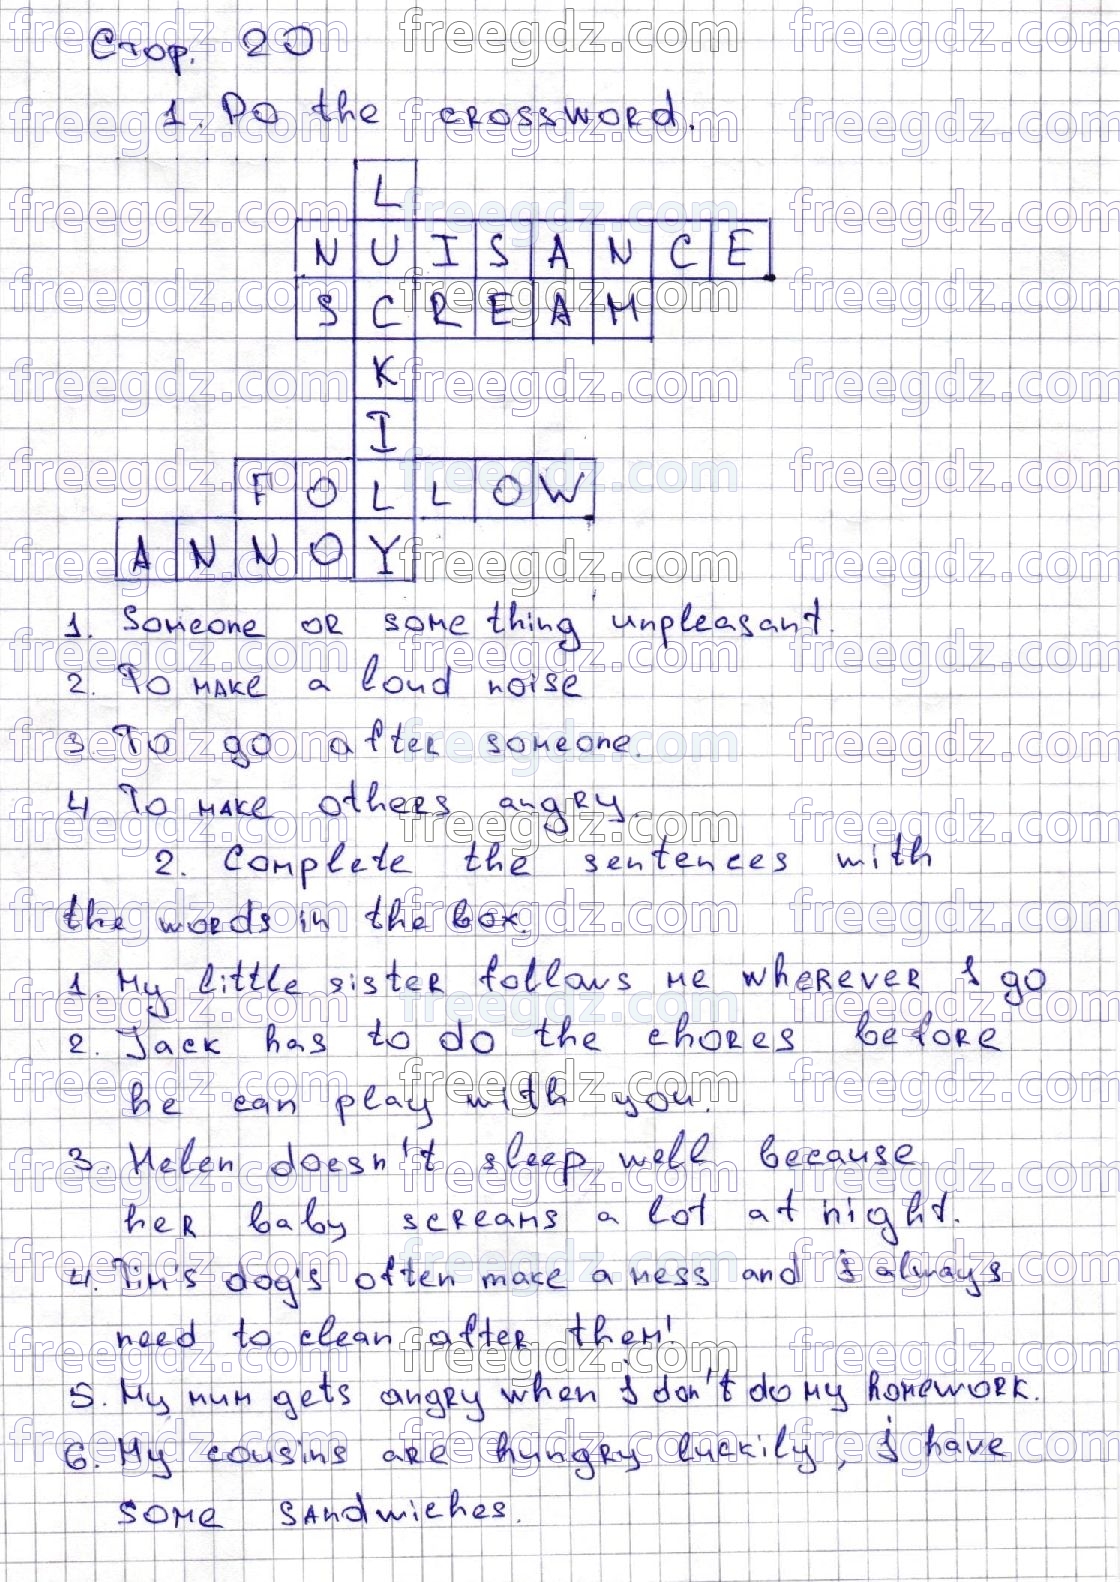 Стор. 20
1. Do the crossword.
L
NUISANCE
SCREAM
K
I
FOLLOW
ANNOY
1. Someone or something unpleasant.
2. To make a loud noise
3 To go after someone.
4 To make others angry.
2. Complete the sentences with
the words in the box.
1 My little sister follows me wherever I go
2. Jack has to do the chores before
he can play with you.
3. Helen doesn't sleep well because
her baby screams a lot at night.
4. Tim's dog's often make a mess and I always
need to clean after them!
5. My mum gets angry when I don't do my homework.
6. My cousins are hungry luckily, I have
some sandwiches.
freegdz.com